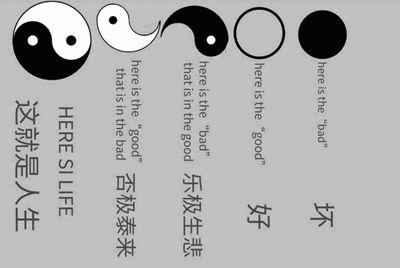 here is the “bad”
坏
here is the “good”
好
here is the “bad”
that is in the good
乐极生悲
here is the “good”
that is in the bad
否极泰来
HERE SI LIFE
这就是人生